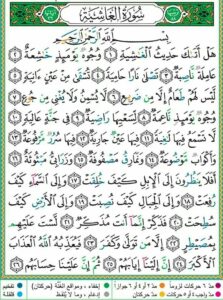 سُورَةُ الغَاشِيَةِ
بِسْمِ ٱللَّهِ ٱلرَّحْمَٰنِ ٱلرَّحِيمِ
هَلْ أَتَىٰكَ حَدِيثُ ٱلْغَٰشِيَةِ ١ وُجُوهٌ يَوْمَئِذٍ خَٰشِعَةٌ ٢
عَامِلَةٌ نَّاصِبَةٌ ٣ تَصْلَىٰ نَارًا حَامِيَةً ٤ تُسْقَىٰ مِنْ عَيْنٍ ءَانِيَةٍ ٥
لَّيْسَ لَهُمْ طَعَامٌ إِلَّا مِن ضَرِيعٍ ٦ لَّا يُسْمِنُ وَلَا يُغْنِى مِن جُوعٍ ٧
وُجُوهٌ يَوْمَئِذٍ نَّاعِمَةٌ ٨ لِّسَعْيِهَا رَاضِيَةٌ ٩ فِى جَنَّةٍ عَالِيَةٍ ١٠
لَّا تَسْمَعُ فِيهَا لَٰغِيَةً ١١ فِيهَا عَيْنٌ جَارِيَةٌ ١٢ فِيهَا سُرُرٌ مَّرْفُوعَةٌ ١٣
وَأَكْوَابٌ مَّوْضُوعَةٌ ١٤ وَنَمَارِقُ مَصْفُوفَةٌ ١٥ وَزَرَابِىُّ مَبْثُوثَةٌ ١٦
أَفَلَا يَنظُرُونَ إِلَى ٱلْإِبِلِ كَيْفَ خُلِقَتْ ١٧ وَإِلَى ٱلسَّمَآءِ كَيْفَ
رُفِعَتْ ١٨ وَإِلَى ٱلْجِبَالِ كَيْفَ نُصِبَتْ ١٩ وَإِلَى ٱلْأَرْضِ كَيْفَ
سُطِحَتْ ٢٠ فَذَكِّرْ إِنَّمَآ أَنتَ مُذَكِّرٌ ٢١ لَّسْتَ عَلَيْهِم
بِمُصَيْطِرٍ ٢٢ إِلَّا مَن تَوَلَّىٰ وَكَفَرَ ٢٣ فَيُعَذِّبُهُ ٱللَّهُ ٱلْعَذَابَ
ٱلْأَكْبَرَ ٢٤ إِنَّ إِلَيْنَآ إِيَابَهُمْ ٢٥ ثُمَّ إِنَّ عَلَيْنَا حِسَابَهُم ٢٦
مدّ ٦ حركات لزوماً مدّ ٢ أو ٤ أو ٦ جوازاً إخفاء، ومواقع الغُنَّة (حركتان) تفخيم
مدّ حركتان إدغام، وما لا يُلفَظ قلقلة